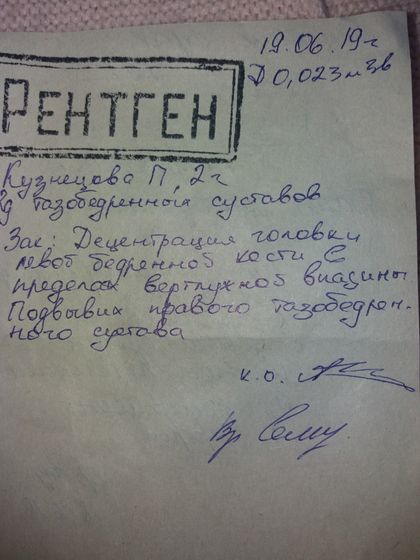 19.06.19г
Д 0,023 мЗв
РЕНТГЕН
Кузнецова П, 2г
тазобедренных суставов
Зак: Децентрация головки
левой бедренной кости в
пределах вертлужной впадины.
Подвывих правого тазобедрен-
ного сустава
к.о.
Вр